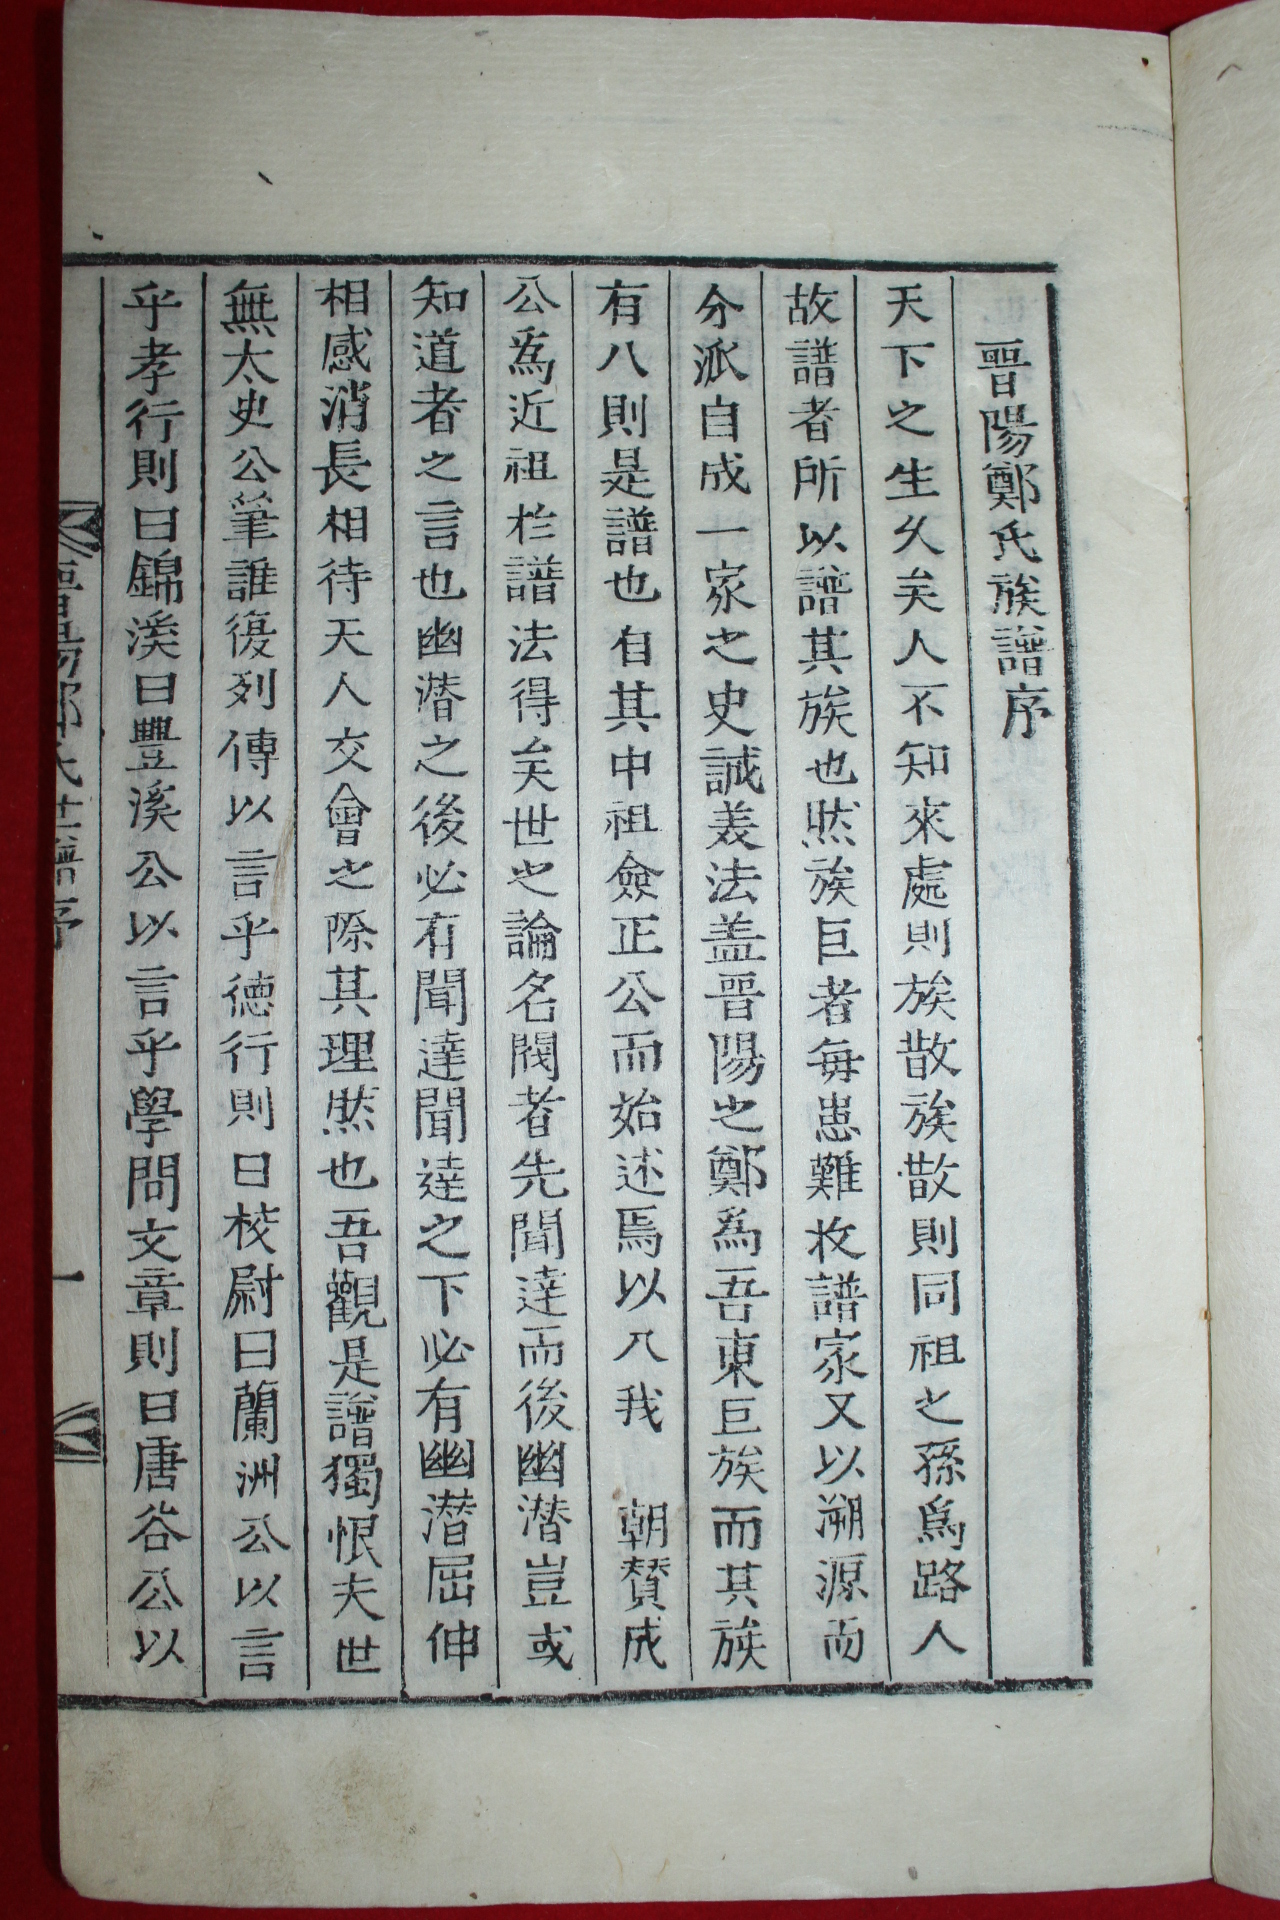 晋陽鄭氏族譜序
天下之生久矣人不知來處則族散族散則同祖之孫爲路人
故譜者所以譜其族也然族巨者每患難收譜家又以溯源而
分派自成一家之史誠義法盖晋陽之鄭爲吾東巨族而其族
有八則是譜也自其中祖僉正公而始述焉以入我 朝贊成
公爲近祖於譜法得矣世之論名閥者先聞達而後幽潜豈或
知道者之言也幽潜之後必有聞達聞達之下必有幽潜屈伸
相感消長相待天人交會之際其理然也吾觀是譜獨恨夫世
無太史公筆誰復列傳以言乎德行則曰校尉曰蘭洲公以言
乎孝行則曰錦溪曰豐溪公以言乎學問文章則曰唐谷公以
晋陽鄭氏世譜序
一